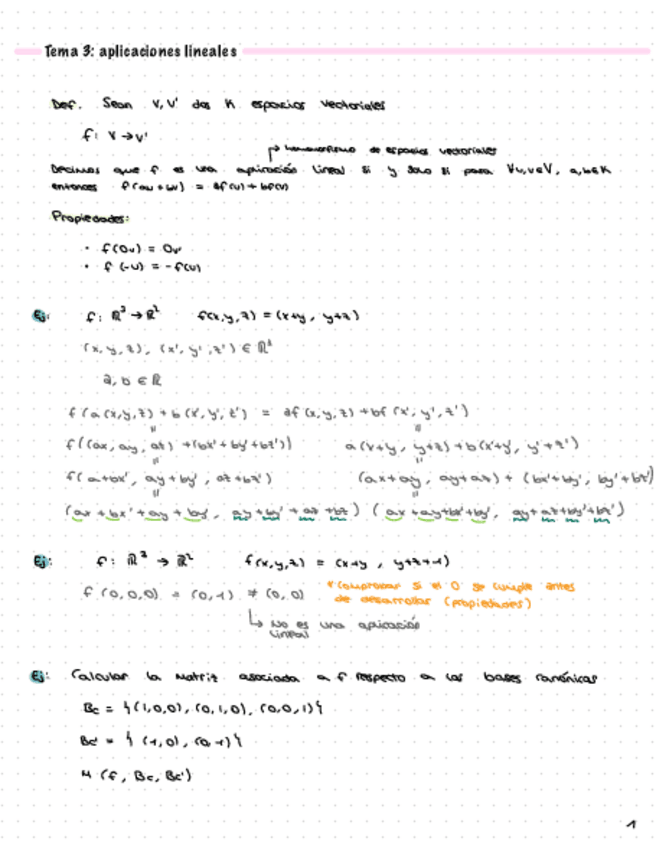 Tema 3: aplicaciones lineales
Def. Sean V, V' dos K espacios vectoriales
f: V → V'
↱ homomorfismo de espacios vectoriales
Decimos que f es una aplicación lineal si y solo si para ∀u,v∈V, a,b∈K
entonces f(au+bv) = af(u)+bf(v)
Propiedades:
· f(0v) = 0v'
· f(-u) = -f(u)
Ej: f: ℝ³ → ℝ² f(x,y,z) = (x+y, y+z)
(x,y,z), (x',y',z') ∈ ℝ³
a, b ∈ ℝ
f(a(x,y,z)+b(x',y',z') = af(x,y,z)+bf(x',y',z')
f((ax,ay,az)+(bx'+by'+bz')) a(x+y, y+z)+b(x'+y', y'+z')
f(a+bx', ay+by', az+bz') (ax+ay, ay+az)+(bx'+by', by'+bz')
(ax+bx'+ay+by', ay+by'+az+bz) (ax+ay+bx'+by', ay+az+by'+bz')
Ej: f: ℝ³ → ℝ² f(x,y,z) = (x+y, y+z+1)
f(0,0,0) = (0,1) ≠ (0,0) *Comprobar si el 0 se cumple antes
de desarrollar (propiedades)
↳ No es una aplicación
lineal
Ej: Calcular la matriz asociada a f respecto a las bases canónicas
Bc = {(1,0,0), (0,1,0), (0,0,1)}
Bc' = {(1,0), (0,1)}
M (f, Bc, Bc')
1